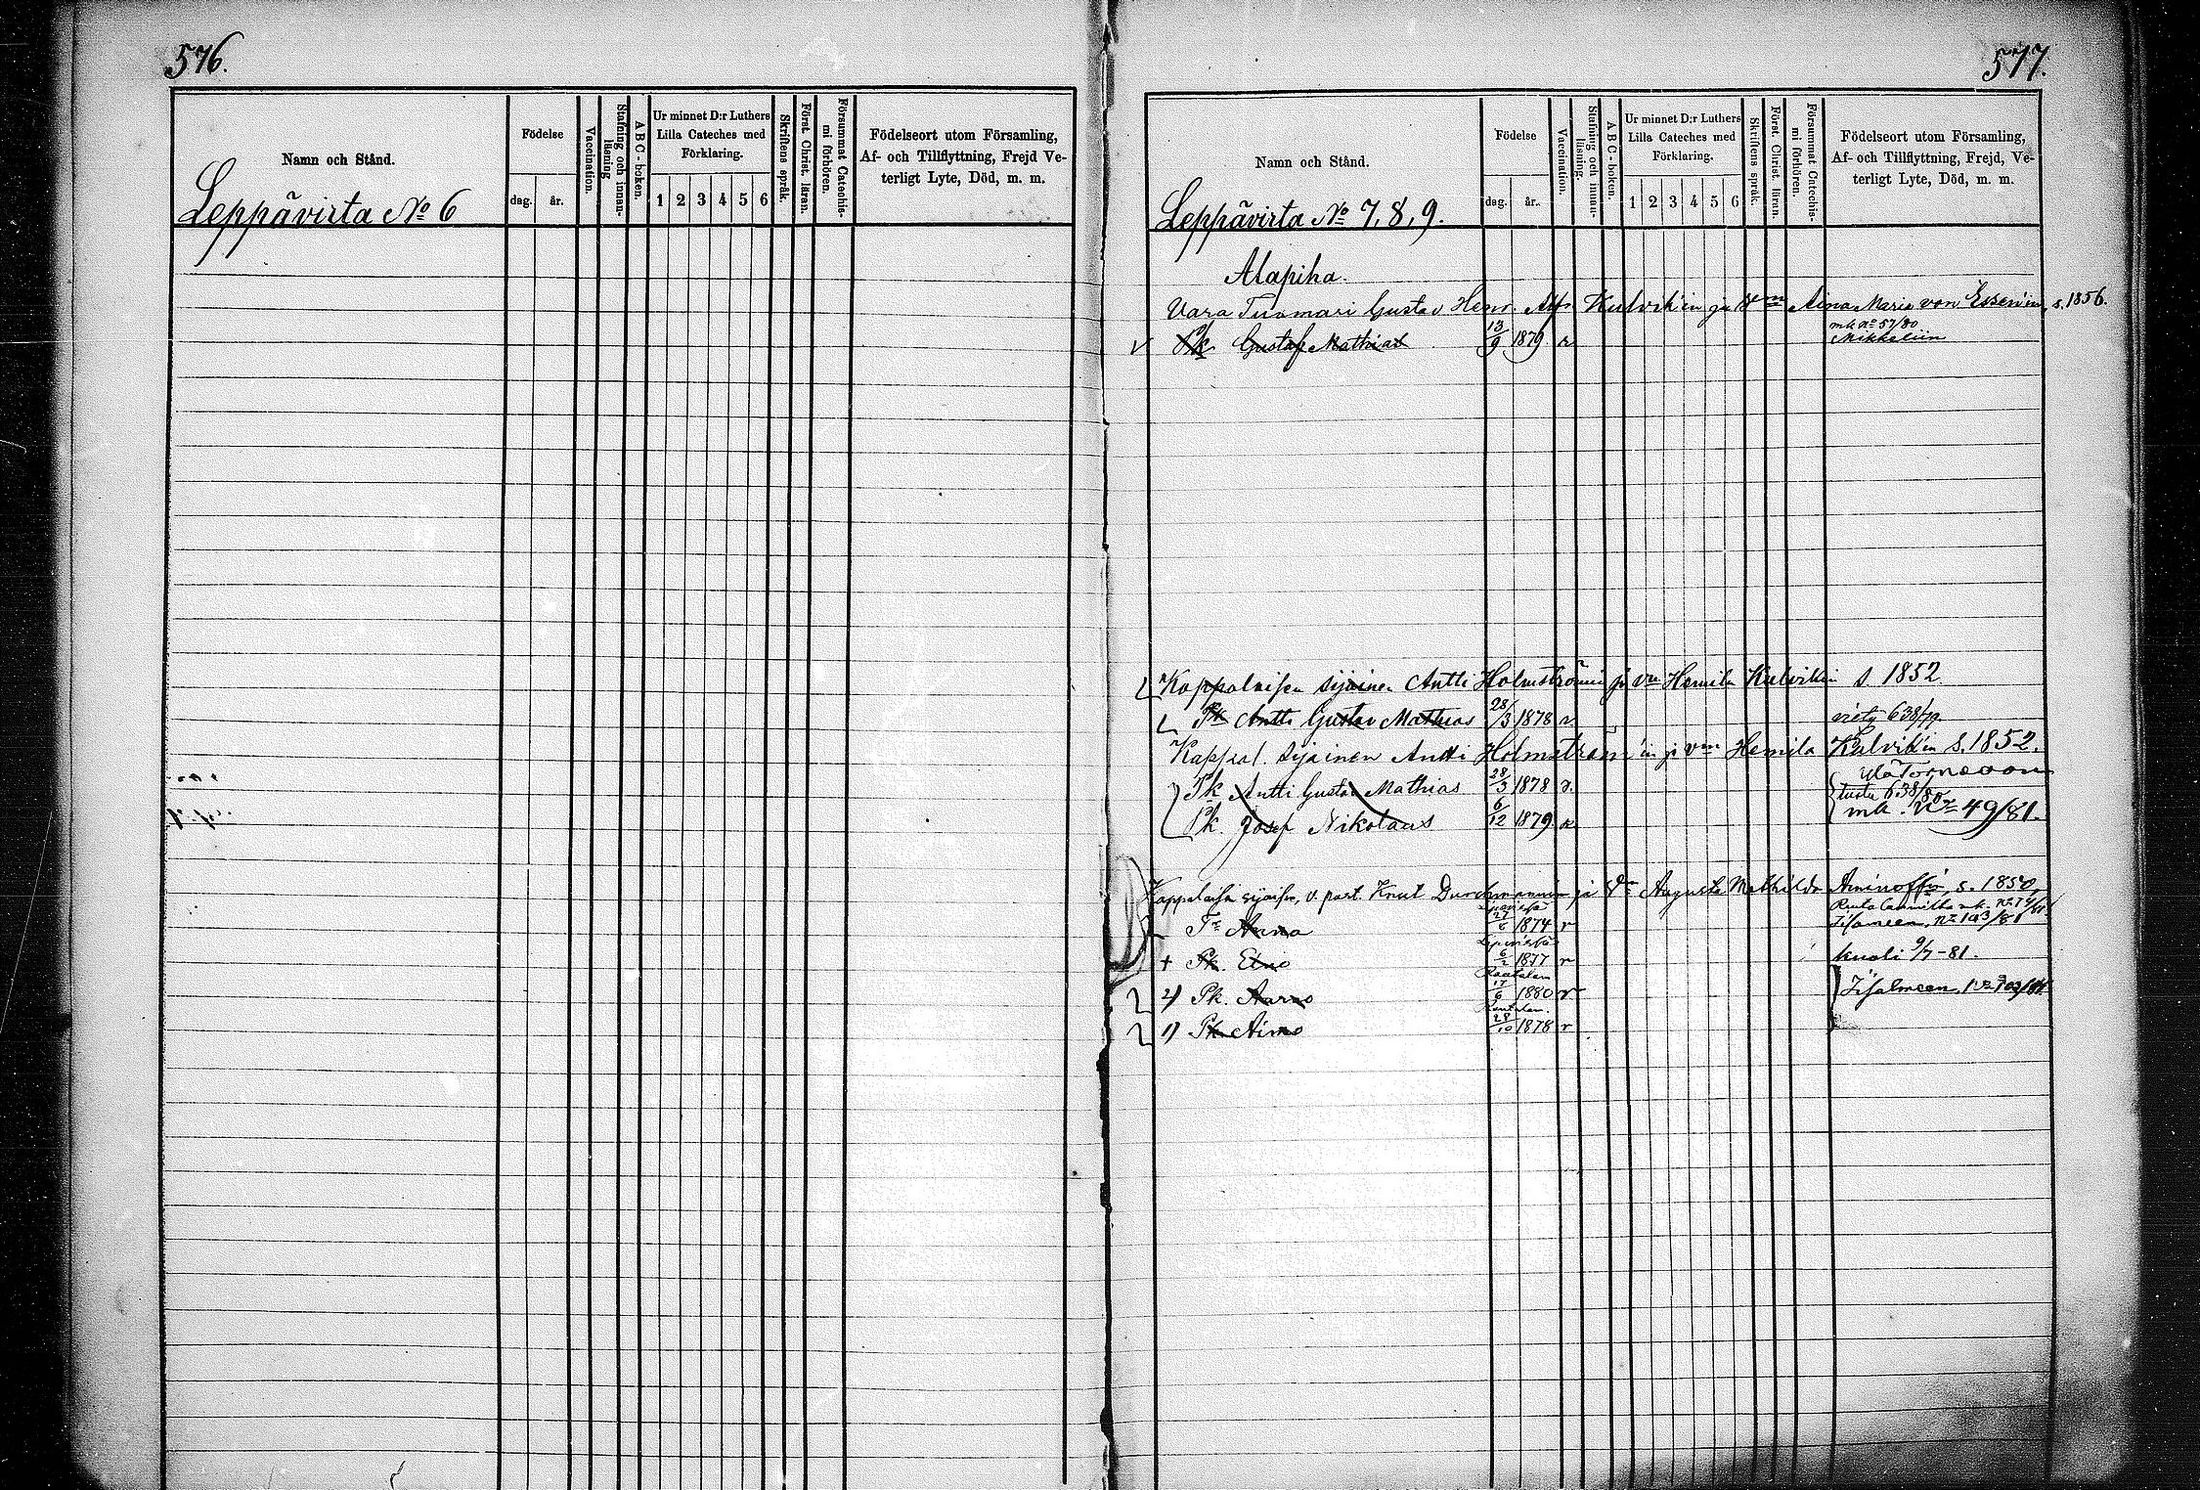 576.
Namn och Stånd.
Leppävirta No 6
Födelse
dag.
år.
Vaccination.
Stafning och innan-
läsning
A B C - boken.
Ur minnet D:r Luthers
Lilla Cateches med
Förklaring.
1 2 3 4 5 6
Skriftens språk.
Först. Christ. läran.
Försummat Catechis-
mi förhören.
Födelseort utom Församling,
Af- och Tillflyttning, Frejd Ve-
terligt Lyte, Död, m. m.
577.
Namn och Stånd.
Leppävirta No 7, 8, 9.
Födelse
dag.
år.
Vaccination.
Stafning och innan-
läsning.
A B C - boken.
Ur minnet D:r Luthers
Lilla Cateches med
Förklaring.
1 2 3 4 5 6
Skriftens språk.
Först. Christ. läran.
Försummat Catechis-
mi förhören.
Födelseort utom Församling,
Af- och Tillflyttning, Frejd, Ve-
terligt Lyte, Död, m. m.
Alapiha.
Vara Tuomari Gustav Henr. Alfr. Kulvik'in ja Vm Aina Maria von Essen'in, s. 1856.
Pk Gustaf Mathias 13/9 1879 r mk No 57/80 Mikkeliin
Kappalaisen sijainen Antti Holmströmin ja vm Hemila Kulvikin s. 1852
Pk Antti Gustav Mathias 28/3 1878 r. viety 638/79
Kappal. sijainen Antti Holmström'in ja vm Hemila Kulvik'in S. 1852.
Ala Torneoon
Pk Antti Gustav Mathias 28/3 1878 r. tuotu 638/80
Pk. Josef Nikolaus 6/12 1879 r mk. No 49/81.
Kappalaisen sijaisen, v. past. Knut Durchmannin ja Vm Augusta Mathilda Aminoffin, s. 1850,
Tr Anna 27/6 1874 r Iisalmeen, No 103/81
† Pk. Eino 6/2 1877 r kuoli 9/7 -81.
Rautalam
2) Pk. Aarno 17/6 1880 r Iisalmeen, No 103/81.
Rautalam.
1) Pk Aimo 28/10 1878 r